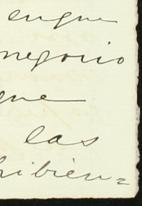 engue
negocio
que
las
hibien=